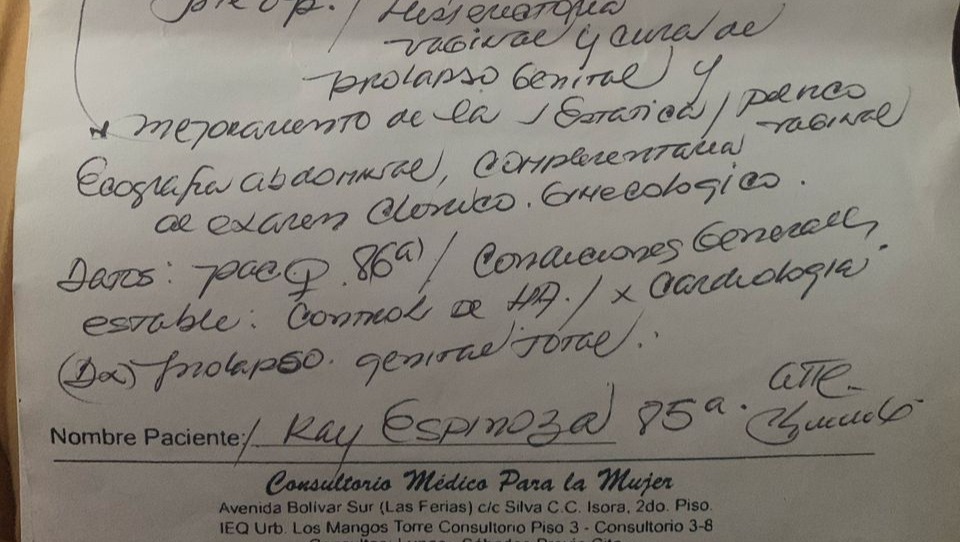 preop. / Histerectomia
vaginal y cura de
prolapso Genital y
mejoramento de la / Estatica / pelvico
vaginal
Ecografia abdominal, complementaria
de examen Clinico. Ginecologico.
Datos: pac ♀ 86a) / Condiciones Generales,
estable: Control de HA. / x Cardiologia.
(Dx) prolapso. genital total.
Nombre Paciente: / Ray Espinoza 85a. atte.
Consultorio Médico Para la Mujer
Avenida Bolivar Sur (Las Ferias) c/c Silva C.C. Isora, 2do. Piso.
IEQ Urb. Los Mangos Torre Consultorio Piso 3 - Consultorio 3-8